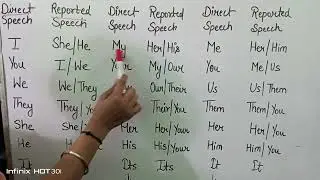 Direct Reported Direct Reported Direct Reported
Speech Speech Speech Speech Speech Speech
I She/He My Her/His Me Her/Him
You I/We Your My/Our You Me/Us
We We/They Our/Their Us Us/Them
They They/You Their/You Them Them/You
She She/ Her Her/Your Her Her/You
He His/Your Him Him/You
Its Its It It
Infinix HOT 30i